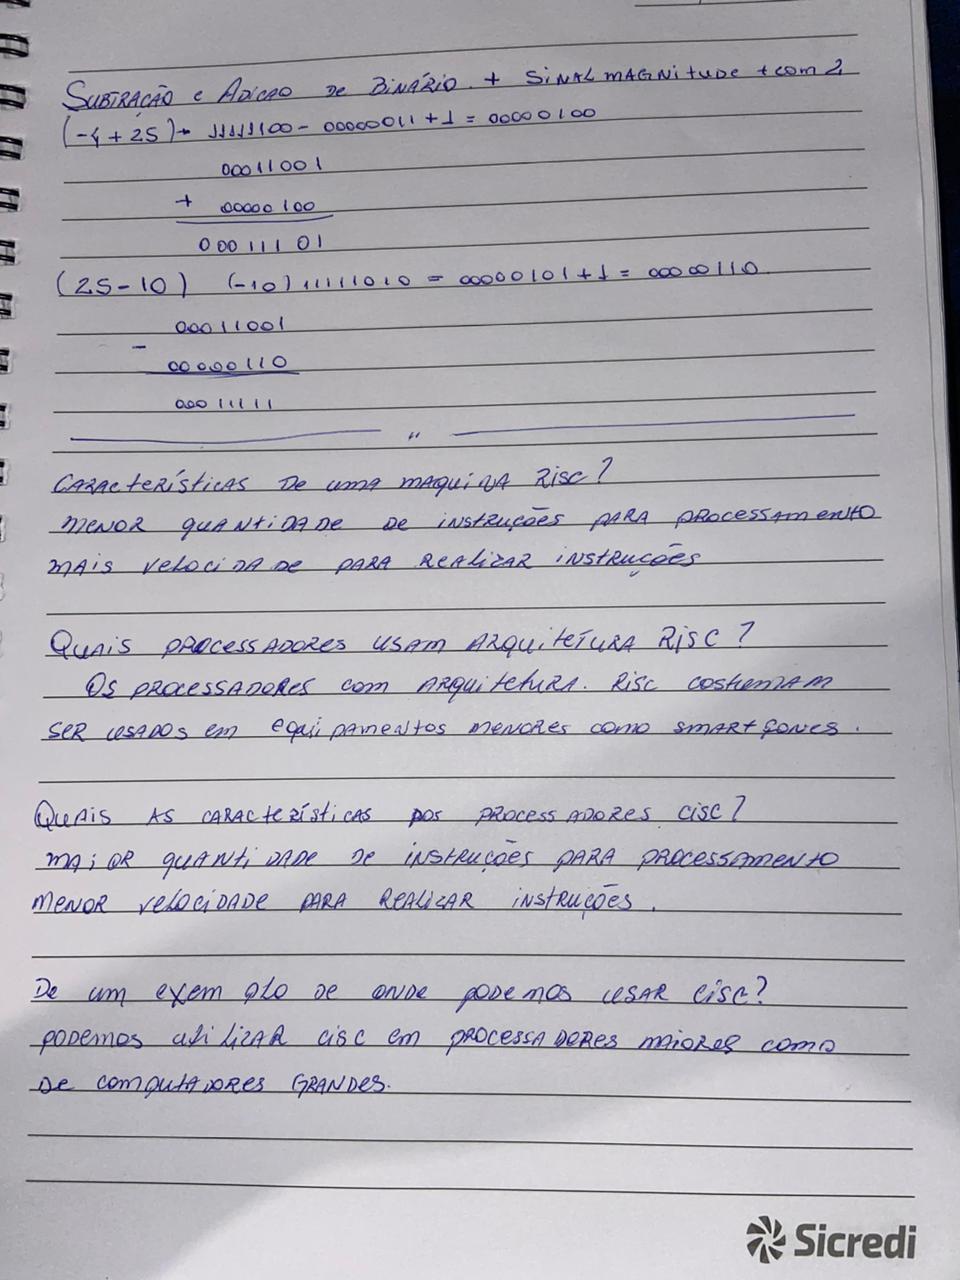 SUBTRAÇÃO e ADICAO DE BINÁRIO. + SINAL MAGNITUDE + com 2
(-4 + 25) - 11111100 - 00000011 + 1 = 00000100
00011001
+ 00000100
00011101
(25 - 10) (-10) 11111010 = 00000101 + 1 = 00000110
00011001
-
00000110
00011111
"
CARACTERÍSTICAS DE UMA MAQUINA RISC?
MENOR QUANTIDADE DE INSTRUÇÕES PARA PROCESSAMENTO
MAIS VELOCIDADE PARA REALIZAR INSTRUÇÕES
QUAIS PROCESSADORES USAM ARQUITETURA RISC?
OS PROCESSADORES COM ARQUITETURA. RISC COSTUMAM
SER USADOS EM EQUIPAMENTOS MENORES COMO SMARTFONES.
QUAIS AS CARACTERÍSTICAS DOS PROCESSADORES CISC?
MAIOR QUANTIDADE DE INSTRUÇÕES PARA PROCESSAMENTO
MENOR VELOCIDADE PARA REALIZAR INSTRUÇÕES.
DE UM EXEMPLO DE ONDE PODEMOS USAR CISC?
PODEMOS UTILIZAR CISC EM PROCESSADORES MAIORES COMO
DE COMPUTADORES GRANDES.
Sicredi